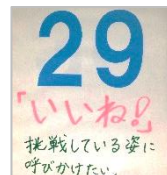 29
「いいね!」
挑戦している姿に
呼びかけたい。